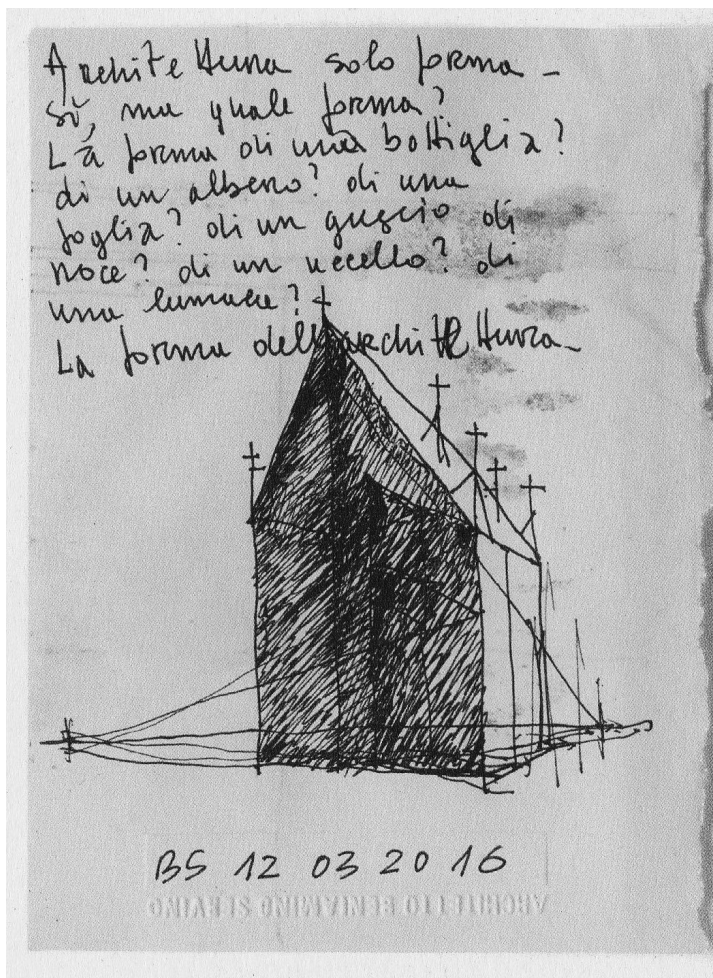 Architettura solo forma -
sì, ma quale forma?
La forma di una bottiglia?
di un albero? di una
foglia? di un guscio di
noce? di un uccello? di
una lumaca?
La forma dell'architettura -
BS 12 03 20 16
ARCHITETTO BENIAMINO SERVINO